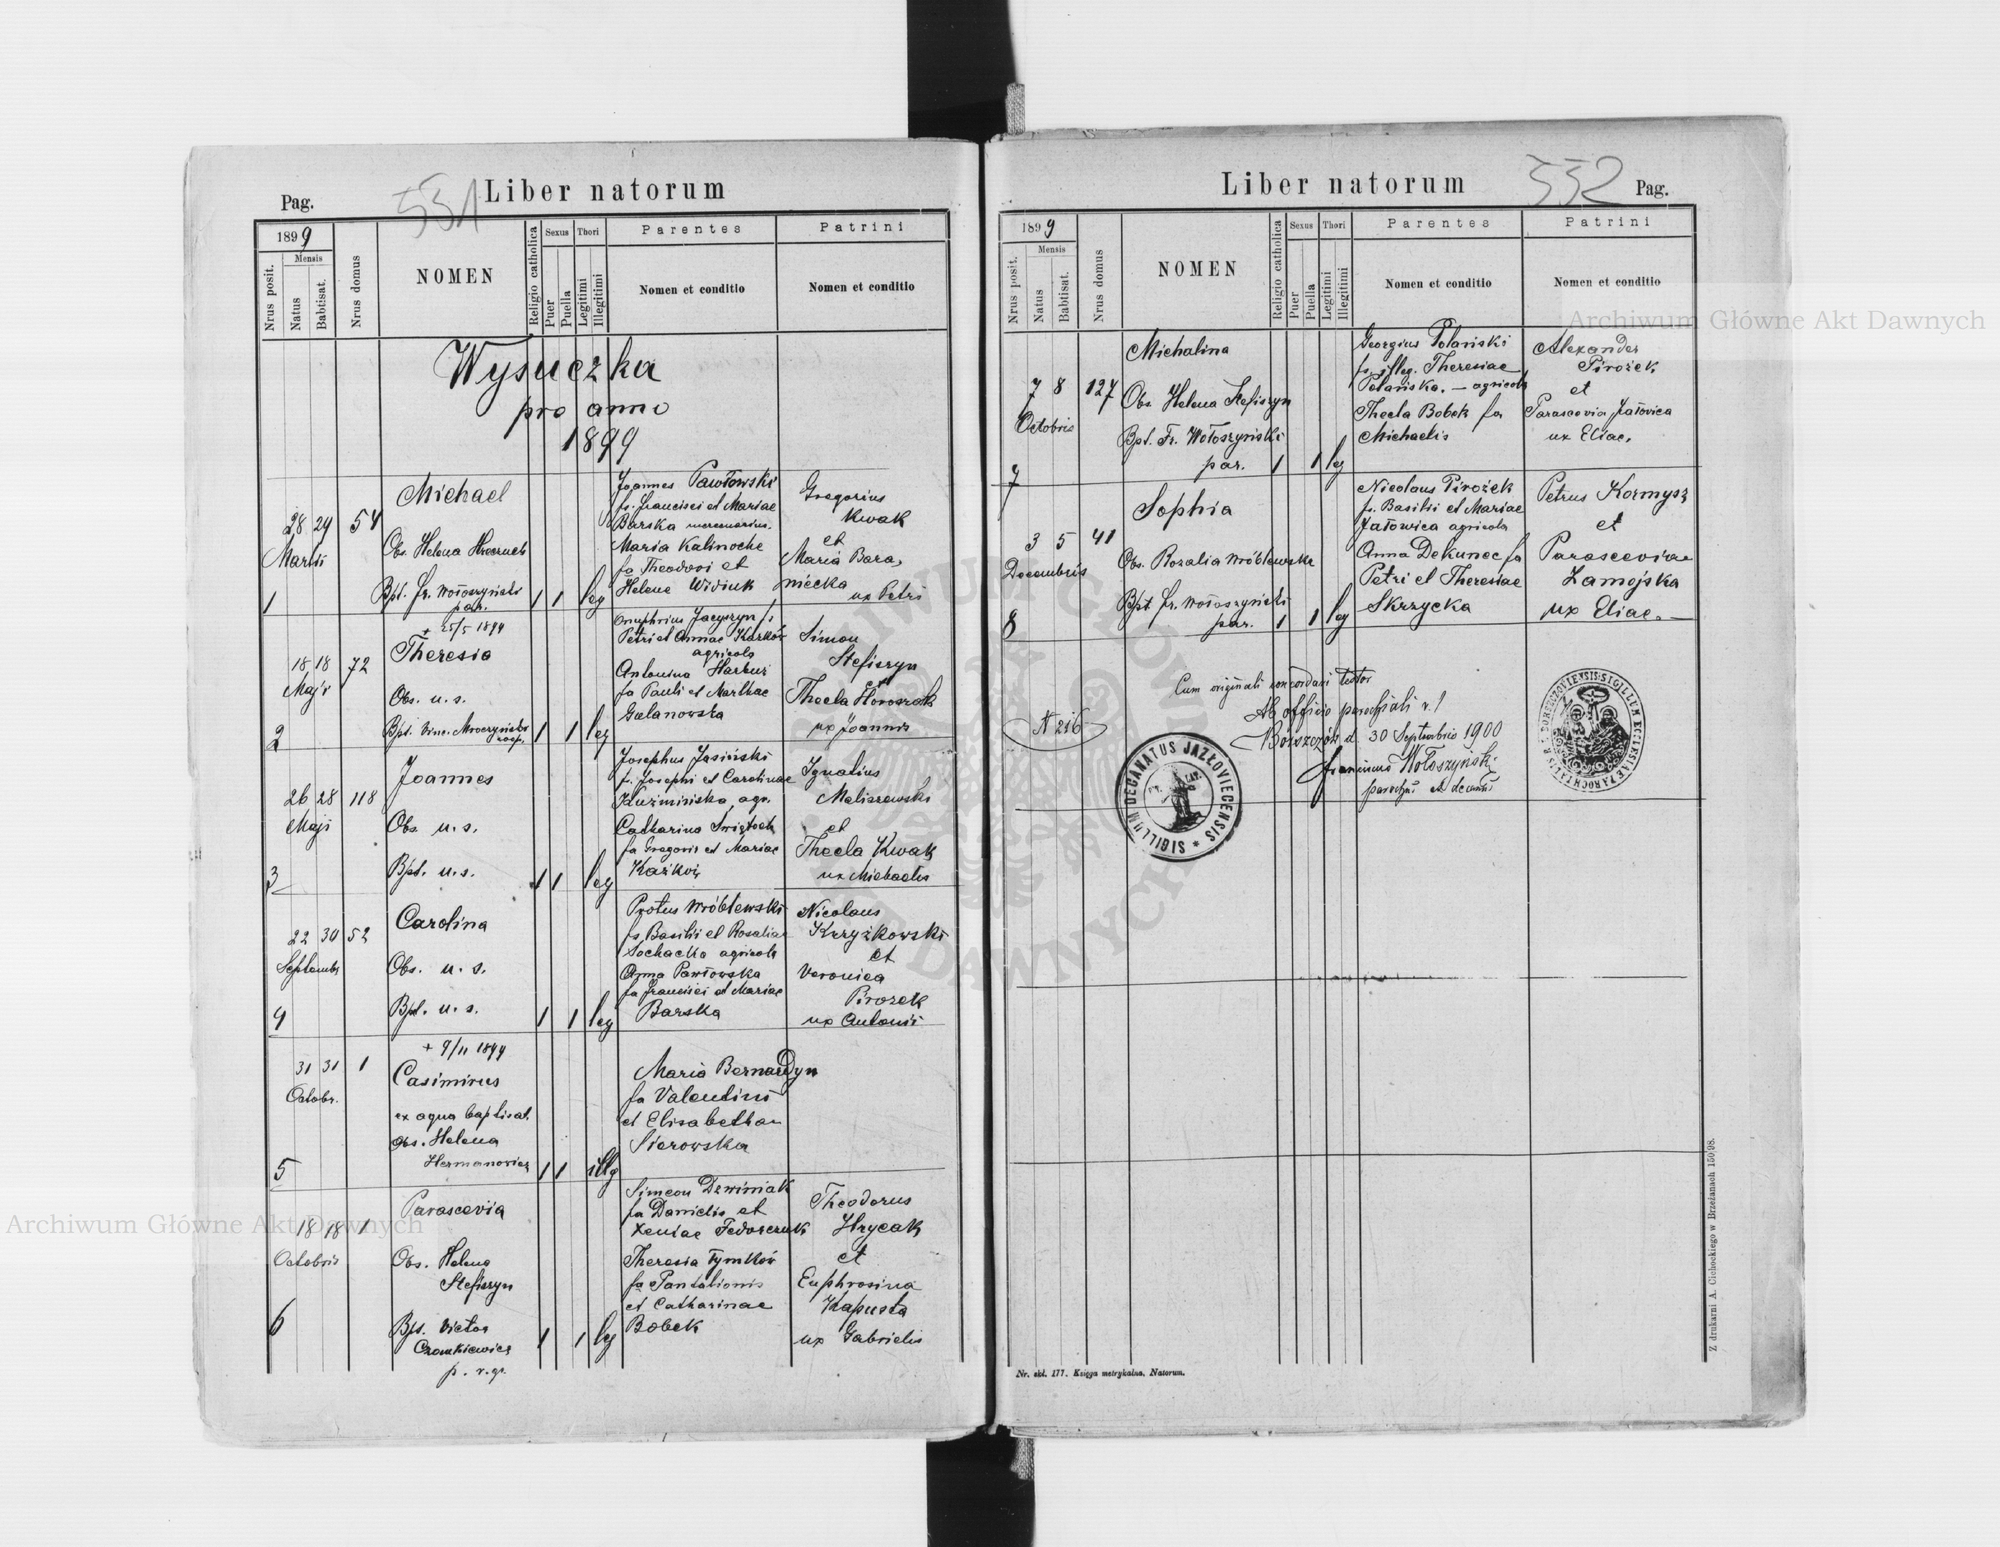 Pag.
551
Liber natorum
1899
Nrus posit.
Mensis
Natus
Babtisat.
Nrus domus
NOMEN
Religio catholica
Sexus
Puer
Puella
Thori
Legitimi
Illegitimi
Parentes
Nomen et conditio
Patrini
Nomen et conditio
Wysuczka
pro anno
1899
1
28 29
Martii
54
Michael
Obs. Helena
Bpt. Fr. Wołoszyński
par.
1 1 leg
Joannes Pawłowski
fs. Francisci et Mariae
Barska mercenarius.
Maria Kalinocke
fa Theodori et
Helene Widiuk
Gregorius
Kwak
et
Maria Bara,
niecka
ux Petri
2
18 18
Maji
72
+ 25/5 1899
Theresia
Obs. u. s.
Bpt. Vinc. Mroczyński
coop.
1 1 leg
Onuphrius Jaryszyn fs
Petri et Annae Karków
agricola
Antonina Harkus
fa Pauli et Marthae
Galanowska
Simon
Stefiszyn
et
Thecla Horoszek
ux Joannis
3
26 28
Maji
118
Joannes
Obs. u. s.
Bpt. u. s.
1 1 leg
Josephus Jasiński
fs. Josephi et Carolinae
Kuźmińska, agr.
Catharina Swiętoch
fa Gregorii et Mariae
Karków
Ignatius
Maliszewski
et
Thecla Kwak
ux Michaelis
4
22 30
Septembr
52
Carolina
Obs. u. s.
Bpt. u. s.
1 1 leg
Protus Wróblewski
fs. Basilii et Rosaliae
Sochacka agricola
Anna Pawłowska
fa Francisci et Mariae
Barska
Nicolaus
Krzyżkowski
et
Veronica
Pirozek
ux Antonii
5
31 31
Octobr.
1
+ 9/11 1899
Casimirus
ex aqua baptisat.
Obs. Helena
Hermanowicz
1 1 illg
Maria Bernardyn
fa Valentini
et Elisabethae
Sierowska
6
18 18
Octobris
1
Parascevia
Obs. Helena
Stefiszyn
Bpt. Victor
Czomkiewicz
p. r. gr.
1 1 leg
Simeon Dzwiniak
fs Danielis et
Xeniae Fedorczuk
Theresia Tymków
fa Pantalionis
et Catharinae
Bobek
Theodorus
Hrycak
et
Euphrosina
Kapusta
ux Gabrielis
Liber natorum
552
Pag.
1899
Nrus posit.
Mensis
Natus
Babtisat.
Nrus domus
NOMEN
Religio catholica
Sexus
Puer
Puella
Thori
Legitimi
Illegitimi
Parentes
Nomen et conditio
Patrini
Nomen et conditio
7
7 8
Octobris
127
Michalina
Obs Helena Stefiszyn
Bpt. Fr. Wołoszyński
par.
1 1 leg
Georgius Polański
fs. illeg. Theresiae
Polańska. — agricola
Thecla Bobek fa
Michaelis
Alexander
Pirożek
et
Parascevia Jatowica
ux Eliae.
8
3 5
Decembris
41
Sophia
Obs. Rozalia Wróblewska
Bpt Fr. Wołoszyński
par.
1 1 leg
Nicolaus Pirożek
fs. Basilii et Mariae
Jatowica agricola
Anna Dekunec fa
Petri et Theresiae
Skrzycka
Petrus Kormysz
et
Parasceviae
Zamojska
ux Eliae. —
Cum originali concordari testor
Ab officio parochiali r. l
N 216
Borszczów d 30 Septembris 1900
Franciscus Wołoszyński
parochus et decanus
SIGILLUM DECANATUS JAZŁOVIECENSIS
Nr. skl. 177. Księga metrykalna. Natorum.
Z drukarni A. Cichockiego w Brzeżanach 150/98.
Archiwum Główne Akt Dawnych
Archiwum Główne Akt Dawnych